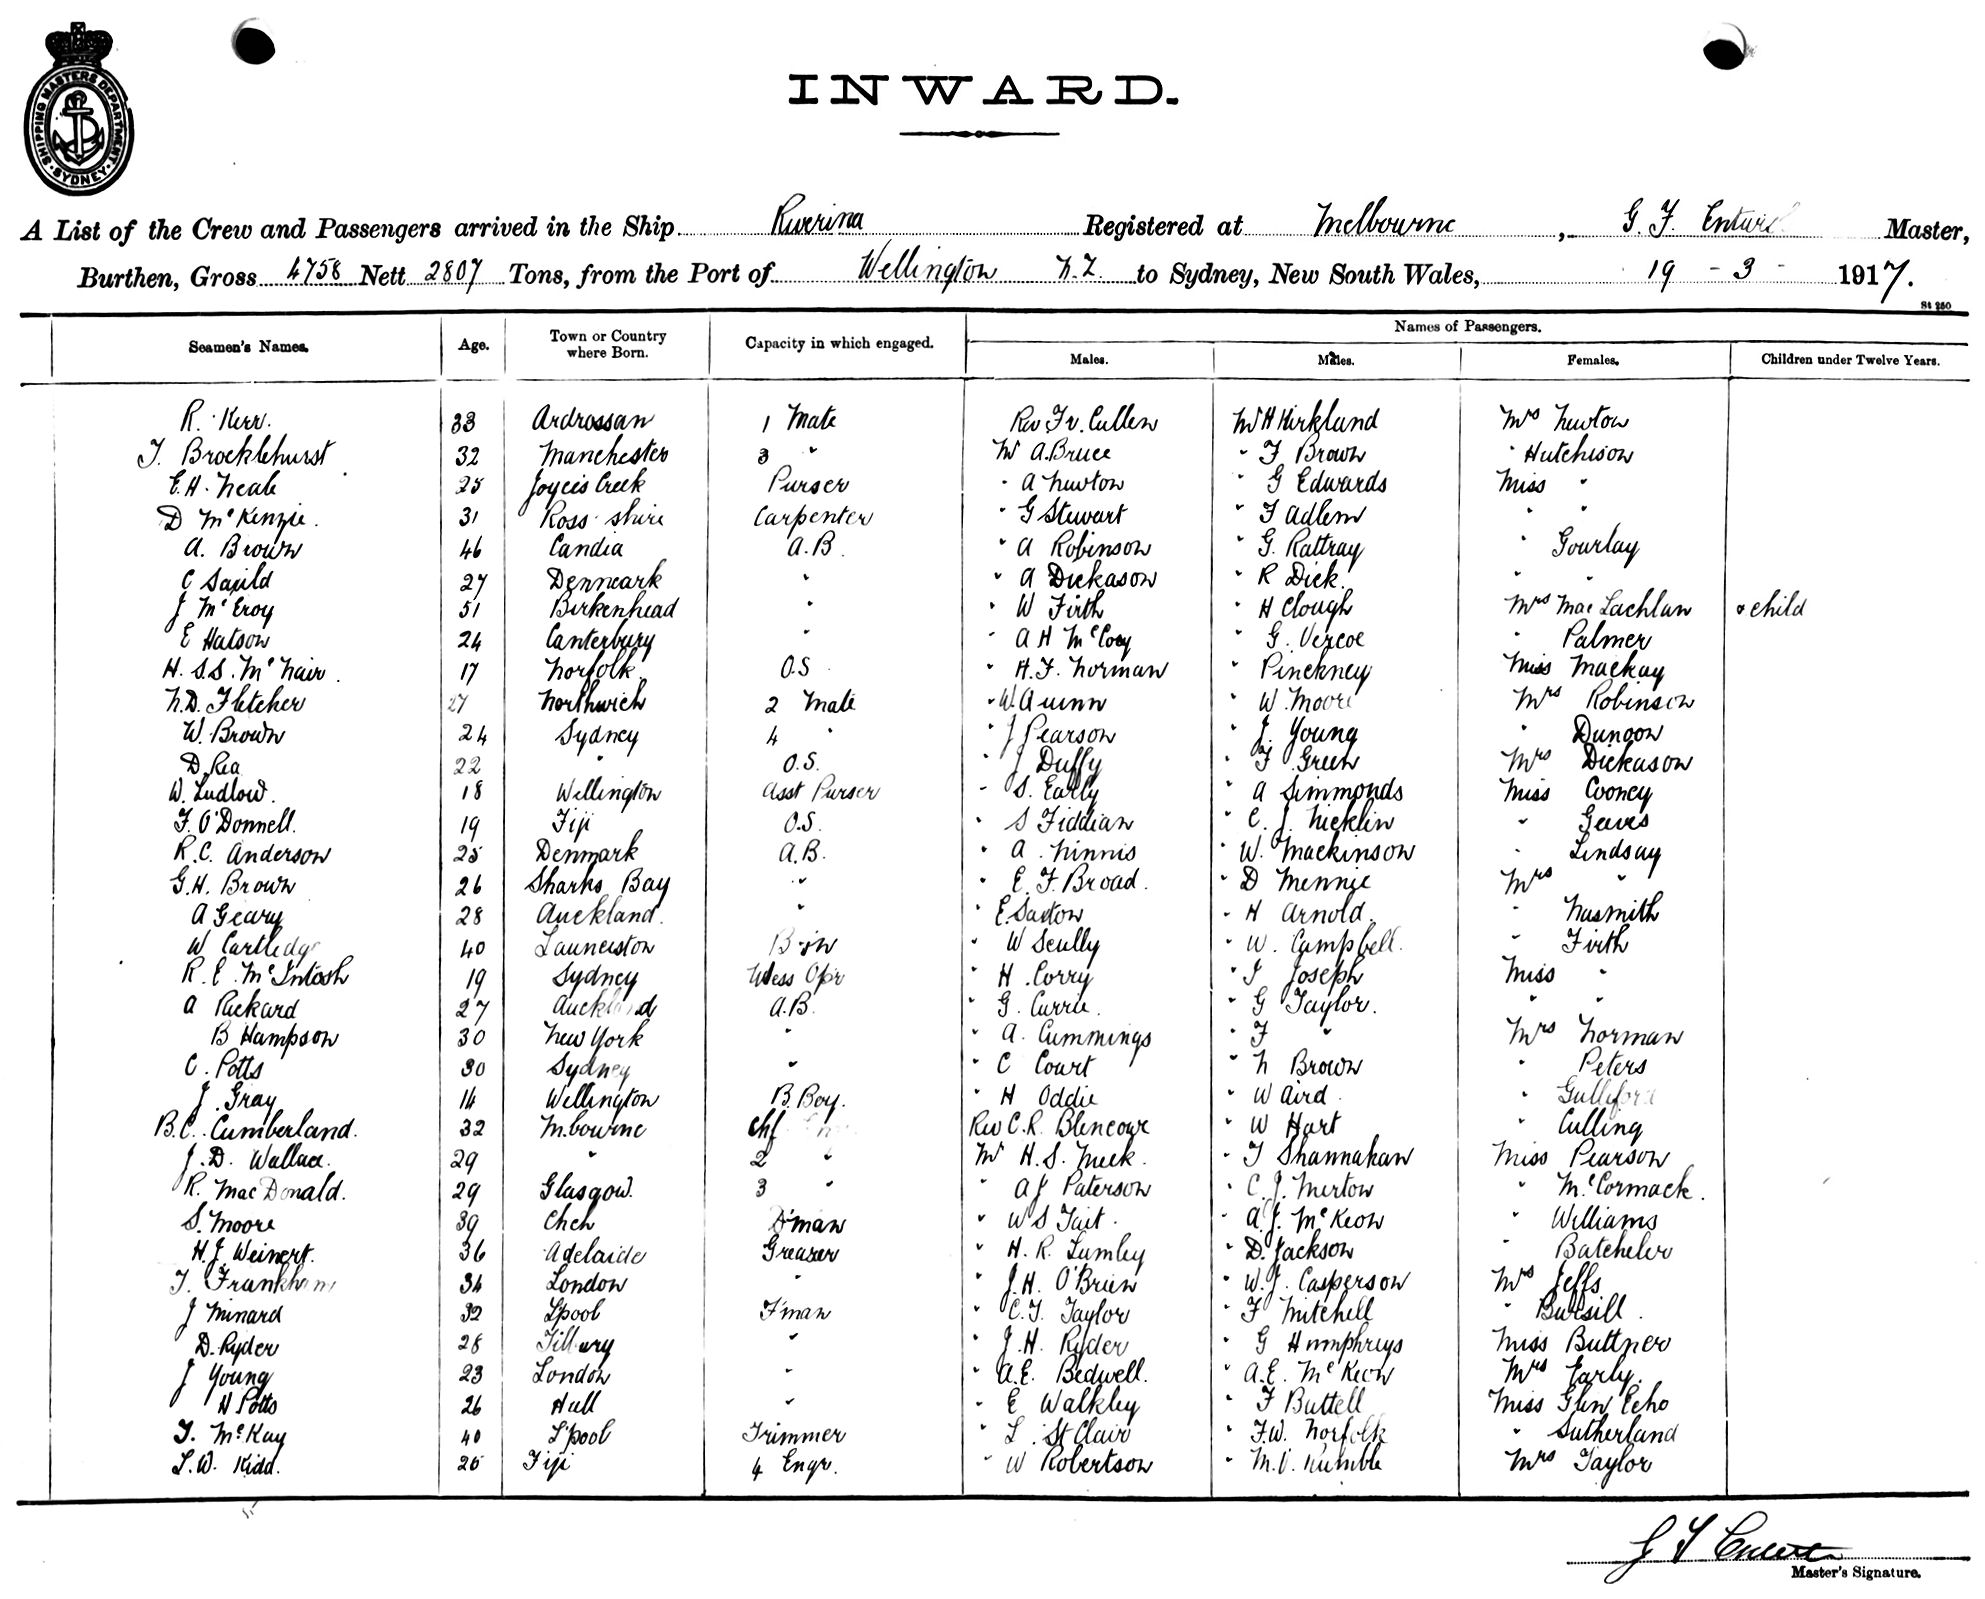 SHIPPING MASTERS DEPARTMENT · SYDNEY ·
INWARD.
A List of the Crew and Passengers arrived in the Ship Riverina Registered at Melbourne, G. F. Master,
Burthen, Gross 4758 Nett 2807 Tons, from the Port of Wellington N.Z. to Sydney, New South Wales, 19 - 3 - 1917.
St 250
Names of Passengers.
Seamen's Names. Age. Town or Country where Born. Capacity in which engaged. Males. Males. Females. Children under Twelve Years.
R. Kerr. 33 Ardrossan 1 Mate Rev. Fr. Cullen Mr H Kirkland Mrs Newton
T. Brocklehurst 32 Manchester 3 " Mr A. Bruce " F Brown " Hutchison
E. H. Neale 25 Joyces Creek Purser " A Newton " G Edwards Miss "
D McKenzie. 31 Ross-shire Carpenter " G Stewart " F Adlem " "
A. Brown 46 Candia A.B. " A Robinson " G. Rattray " Gourlay
C 27 Denmark " " A Dickason " R Dick. " "
J McEroy 51 Birkenhead " " W Firth " H Clough Mrs MacLachlan & child
E Hatson 24 Canterbury " " A H McCoy " G. Vercoe " Palmer
H. S.S. McNair. 17 Norfolk. O.S. " H. F. Norman " Pinckney Miss Mackay
N.D. Fletcher 27 Northwich 2 Mate " W. Quinn " W. Moore Mrs Robinson
W. Brown 24 Sydney 4 " " J Pearson " J. Young " Dunoon
D. Rea 22 " O.S. " J Duffy " F Green Mrs Dickason
W. Ludlow. 18 Wellington Asst Purser " S. Early " A Simmonds Miss Cooney
F. O'Donnell. 19 Fiji O.S. " S Fiddian " C. J. Nicklin " Geeves
R. C. Anderson 25 Denmark A.B. " A. Ninnis " W. Mackinson " Lindsay
G. H. Brown 26 Sharks Bay " " E. F. Broad. " D Mennie Mrs "
A Geary 28 Auckland. " " E. Saxton " H Arnold. " Nasmith
W Cartledge 40 Launceston " W Scully " W. Campbell. " Firth
R. E. McIntosh 19 Sydney Wless Opr " H. Corry " J Joseph Miss "
A Rickard 27 Auckland A.B. " G. Currie. " G Taylor. " "
B Hampson 30 New York " " A. Cummings " F " Mrs Norman
C. Potts 30 Sydney " " C Court " N Brown " Peters
J. Gray 14 Wellington B. Boy. " H Oddie " W Aird " Gulliford
B.C. Cumberland. 32 M.bourne Chf Rev C. R. Blencowe " W Hart " Culling
J. D. Wallace. 29 " 2 " Mr H. S. Meek. " T Shannahan Miss Pearson
R. MacDonald. 29 Glasgow. 3 " " A J Paterson " C. J. Merton " McCormack.
S. Moore 39 D'man " W S Tait. " A. J. McKeon " Williams
H. J. Weinert. 36 Adelaide Greaser " H. R. Lumley " D. Jackson " Batchelor
T. Frankham 34 London " " J. H. O'Brien " W. J. Casperson Mrs Jeffs
J Minard 32 L'pool F'man " C. T. Taylor " F Mitchell " Bursill.
D. Ryder 28 Tilbury " " J. H. Ryder " G Humphreys Miss Buttner
J Young 23 London " " A. E. Bedwell. " A. E. McKeon Mrs Early.
H Potts 26 Hull " " E Walkley " F Buttell Miss Glen Echo
T. McKay 40 L'pool Trimmer " L. St Clair " F.W. Norfolk " Sutherland
L. W. Kidd. 25 Fiji 4 Engr. " W Robertson " M. V. Rumble Mrs Taylor
Master's Signature.